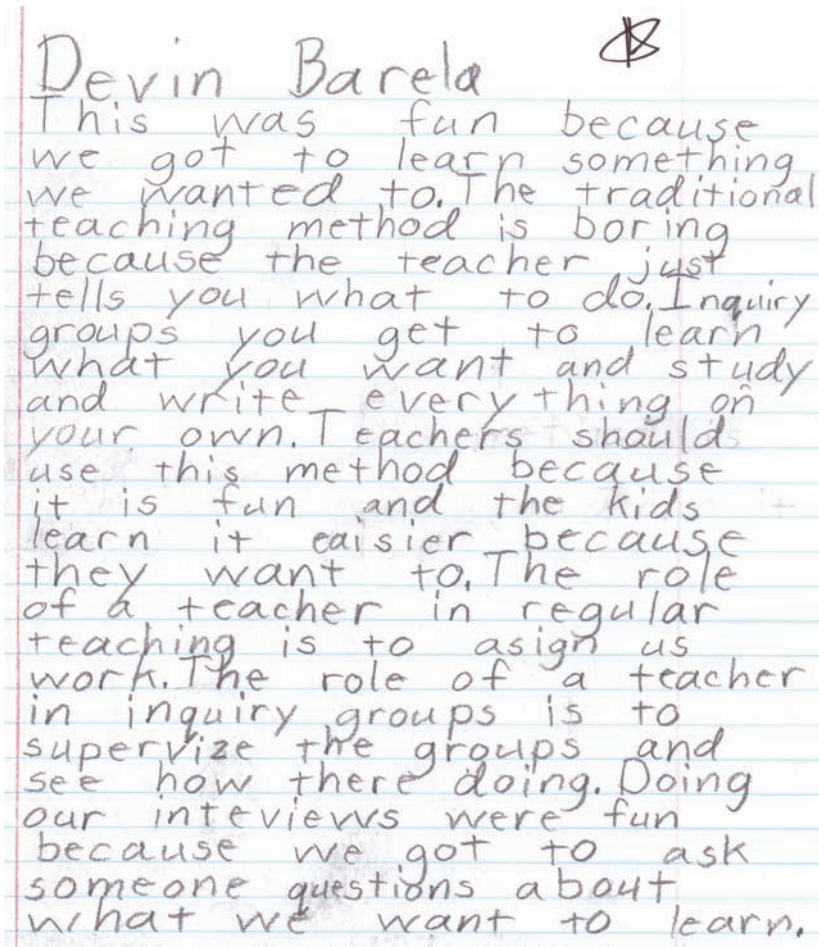 Devin Barela
This was fun because
we got to learn something
we wanted to. The traditional
teaching method is boring
because the teacher just
tells you what to do. Inquiry
groups you get to learn
what you want and study
and write everything on
your own. Teachers should
use this method because
it is fun and the kids
learn it eaisier because
they want to. The role
of a teacher in regular
teaching is to asign us
work. The role of a teacher
in inquiry groups is to
supervize the groups and
see how there doing. Doing
our inteviews were fun
because we got to ask
someone questions about
what we want to learn.